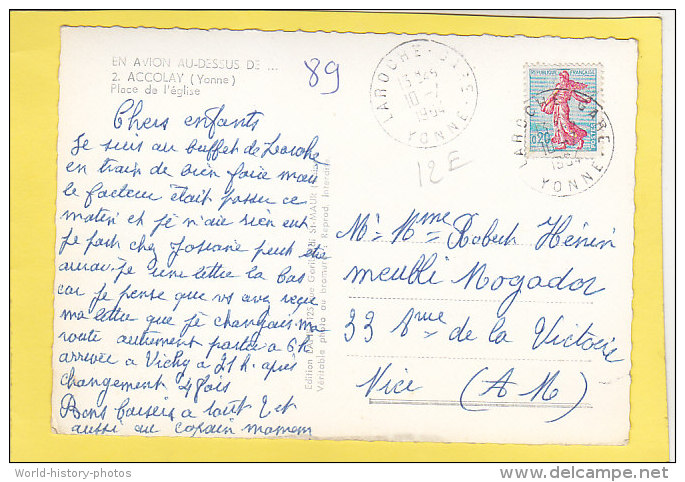 EN AVION AU-DESSUS DE ...
2. ACCOLAY (Yonne)
Place de l'église
89
LAROCHE
10-7
1964
YONNE
12E
REPUBLIQUE FRANÇAISE
0,20
LAROCHE GARE
1964
YONNE
Chers enfants
Je suis au buffet de Laroche
en train de bien faire mais
le facteur était passer ce
matin et je n'aie rien eut
je part chez Josiane peut être
aurai je une lettre la bas
car je pense que vs avez reçue
ma lettre que je changeais ma
route autrement partie a 6h
arrivée a Vichy a 21h. après
changement 4 fois
Bons baisers a tout 2 et
aussi au copain mamem
Edition
Véritable photo au bromure Reprod. interdite
Mr Mme Robert Hénin
meublé Mogador
33 Avue de la Victoire
Nice (A M)
World-history-photos
delcampe.net